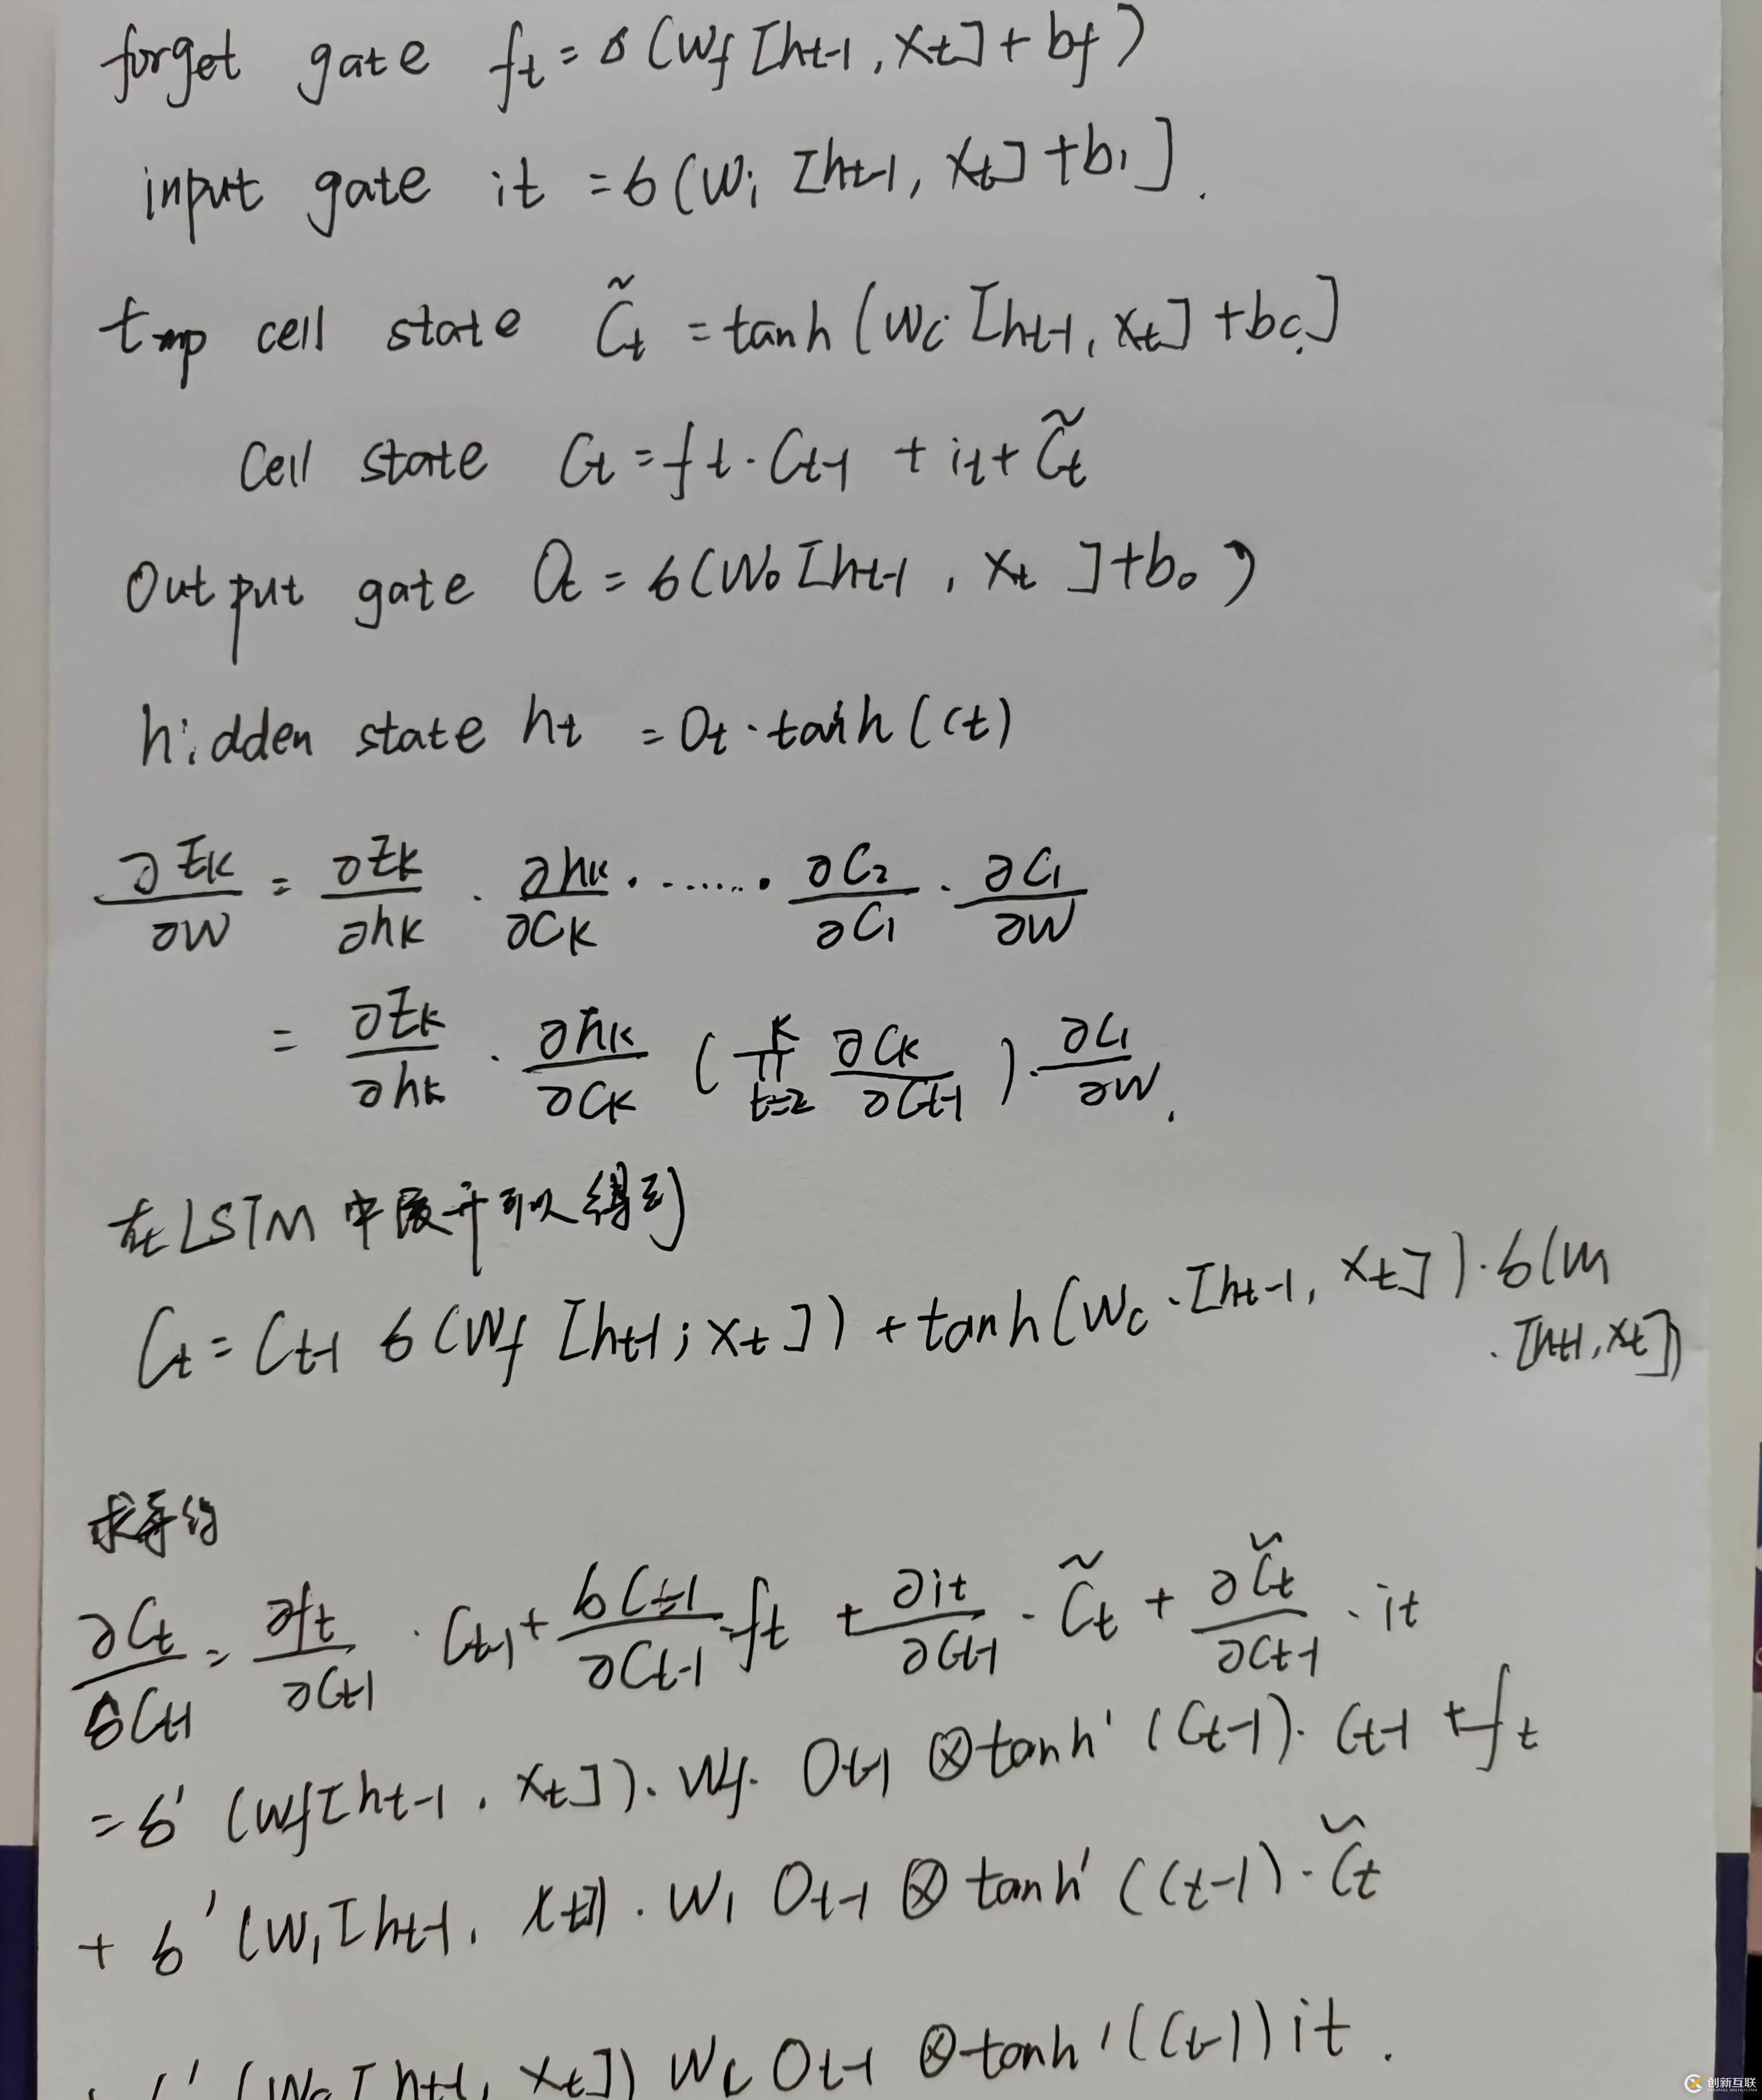 forget gate ft = σ(Wf [ht-1, xt] + bf)
input gate it = σ(Wi [ht-1, xt] + bi].
tmp cell state C̃t = tanh(Wc [ht-1, xt] + bc]
Cell state Ct = ft · Ct-1 + it + C̃t
Output gate Ot = σ(Wo [ht-1, xt] + bo)
hidden state ht = Ot · tanh(Ct)
∂Ek/∂W = ∂Ek/∂hk · ∂hk/∂Ck · ...... · ∂C2/∂C1 · ∂C1/∂W
= ∂Ek/∂hk · ∂hk/∂Ck (∏ k t=2 ∂Ck/∂Ct-1) · ∂C1/∂W.
在LSTM中展开可以得到
Ct = Ct-1 σ(Wf [ht-1; xt]) + tanh(Wc · [ht-1, xt]) · σ(Wi
· [ht-1, xt])
求导得
∂Ct/∂Ct-1 = ∂ft/∂Ct-1 · Ct-1 + ∂Ct-1/∂Ct-1 · ft + ∂it/∂Ct-1 · C̃t + ∂C̃t/∂Ct-1 · it
= σ'(Wf[ht-1, xt]) · Wf · Ot-1 ⊗ tanh'(Ct-1) · Ct-1 + ft
+ σ'(Wi[ht-1, xt]) · Wi Ot-1 ⊗ tanh'(Ct-1) · C̃t
+ σ'(Wc[ht-1, xt]) Wc Ot-1 ⊗ tanh'(Ct-1) it.
创新互联